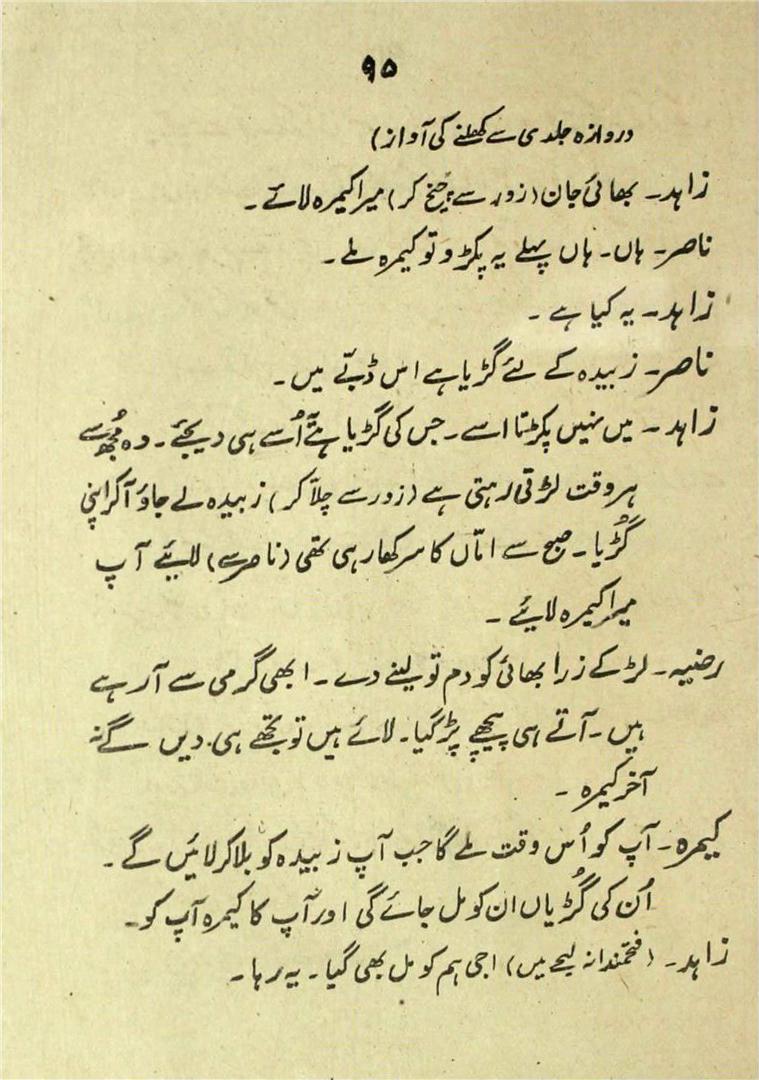 ۹۵
دروازہ جلدی سے کھلنے کی آواز)
زاہد۔ بھائی جان (زور سے چیخ کر) میرا کیمرہ لائے۔
ناصر۔ ہاں۔ ہاں پہلے یہ پکڑو تو کیمرہ ملے۔
زاہد۔ یہ کیا ہے۔
ناصر۔ زبیدہ کے لئے گڑیا ہے اس ڈبّے میں۔
زاہد۔ میں نہیں پکڑتا اسے۔ جس کی گڑیا ہے اُسے ہی دیجئے۔ وہ مُجھ سے
ہر وقت لڑتی رہتی ہے (زور سے چلّا کر) زبیدہ لے جاؤ آکر اپنی
گُڑیا۔ صبح سے امّاں کا سر کھا رہی تھی (ناصر سے) لائیے آپ
میرا کیمرہ لائیے۔
رضیہ۔ لڑکے زرا بھائی کو دم تو لینے دے۔ ابھی گرمی سے آرہے
ہیں۔ آتے ہی پیچھے پڑ گیا۔ لائے ہیں تو تجھے ہی دیں گے نہ
آخر کیمرہ۔
کیمرہ۔ آپ کو اُس وقت ملے گا جب آپ زبیدہ کو بلا کر لائیں گے۔
اُن کی گُڑیاں ان کو مل جائے گی اور آپ کا کیمرہ آپ کو۔
زاہد۔ (فتحمندانہ لہجے میں) اجی ہم کو مل بھی گیا۔ یہ رہا۔